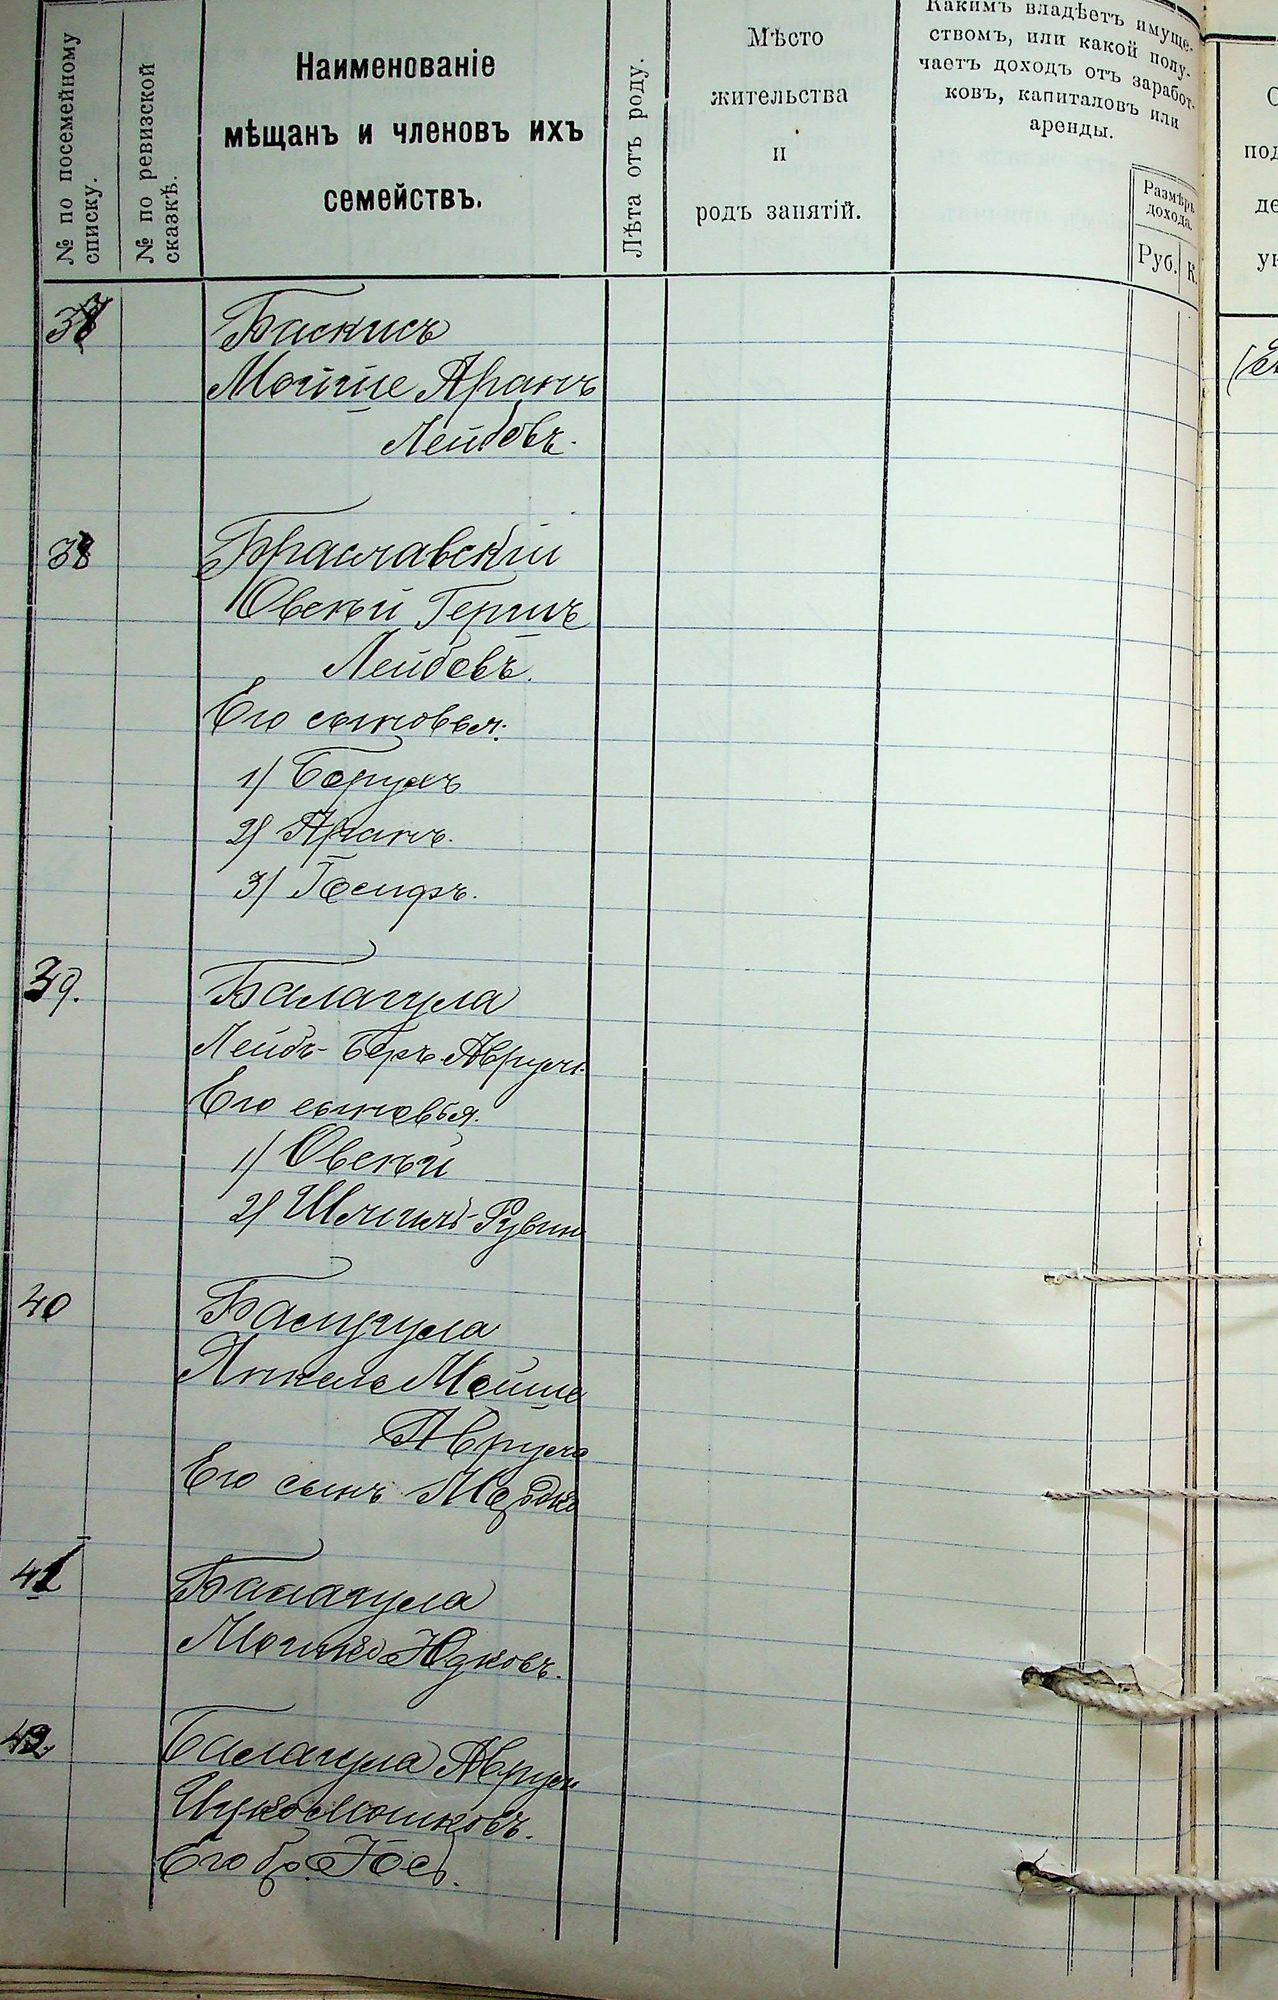 № по посемейному
списку.
№ по ревизской
сказкѣ.
Наименованіе
мѣщанъ и членовъ ихъ
семействъ.
Лѣта отъ роду.
Мѣсто
жительства
и
родъ занятій.
Какимъ владѣетъ имуще-
ствомъ, или какой полу-
чаетъ доходъ отъ заработ-
ковъ, капиталовъ или
аренды.
Размѣръ
дохода.
Руб.
К.
37
Баскисъ
Мойше Аранъ
Лейбовъ.
38
Браславскій
Овсѣй Гершъ
Лейбовъ.
Его сыновья:
1) Борухъ
2) Аранъ.
3) Іосифъ.
39.
Балагула
Лейбъ-Беръ Аврум
Его сыновья.
1) Овсѣй
2) Рувин
40
Балагула
Янкель Мойше
Аврум
Его сынъ Мордко
41
Балагула
Мошко Юдковъ.
42
Балагула Аврум
Ицко Мошковъ.
Его бр. Іось.